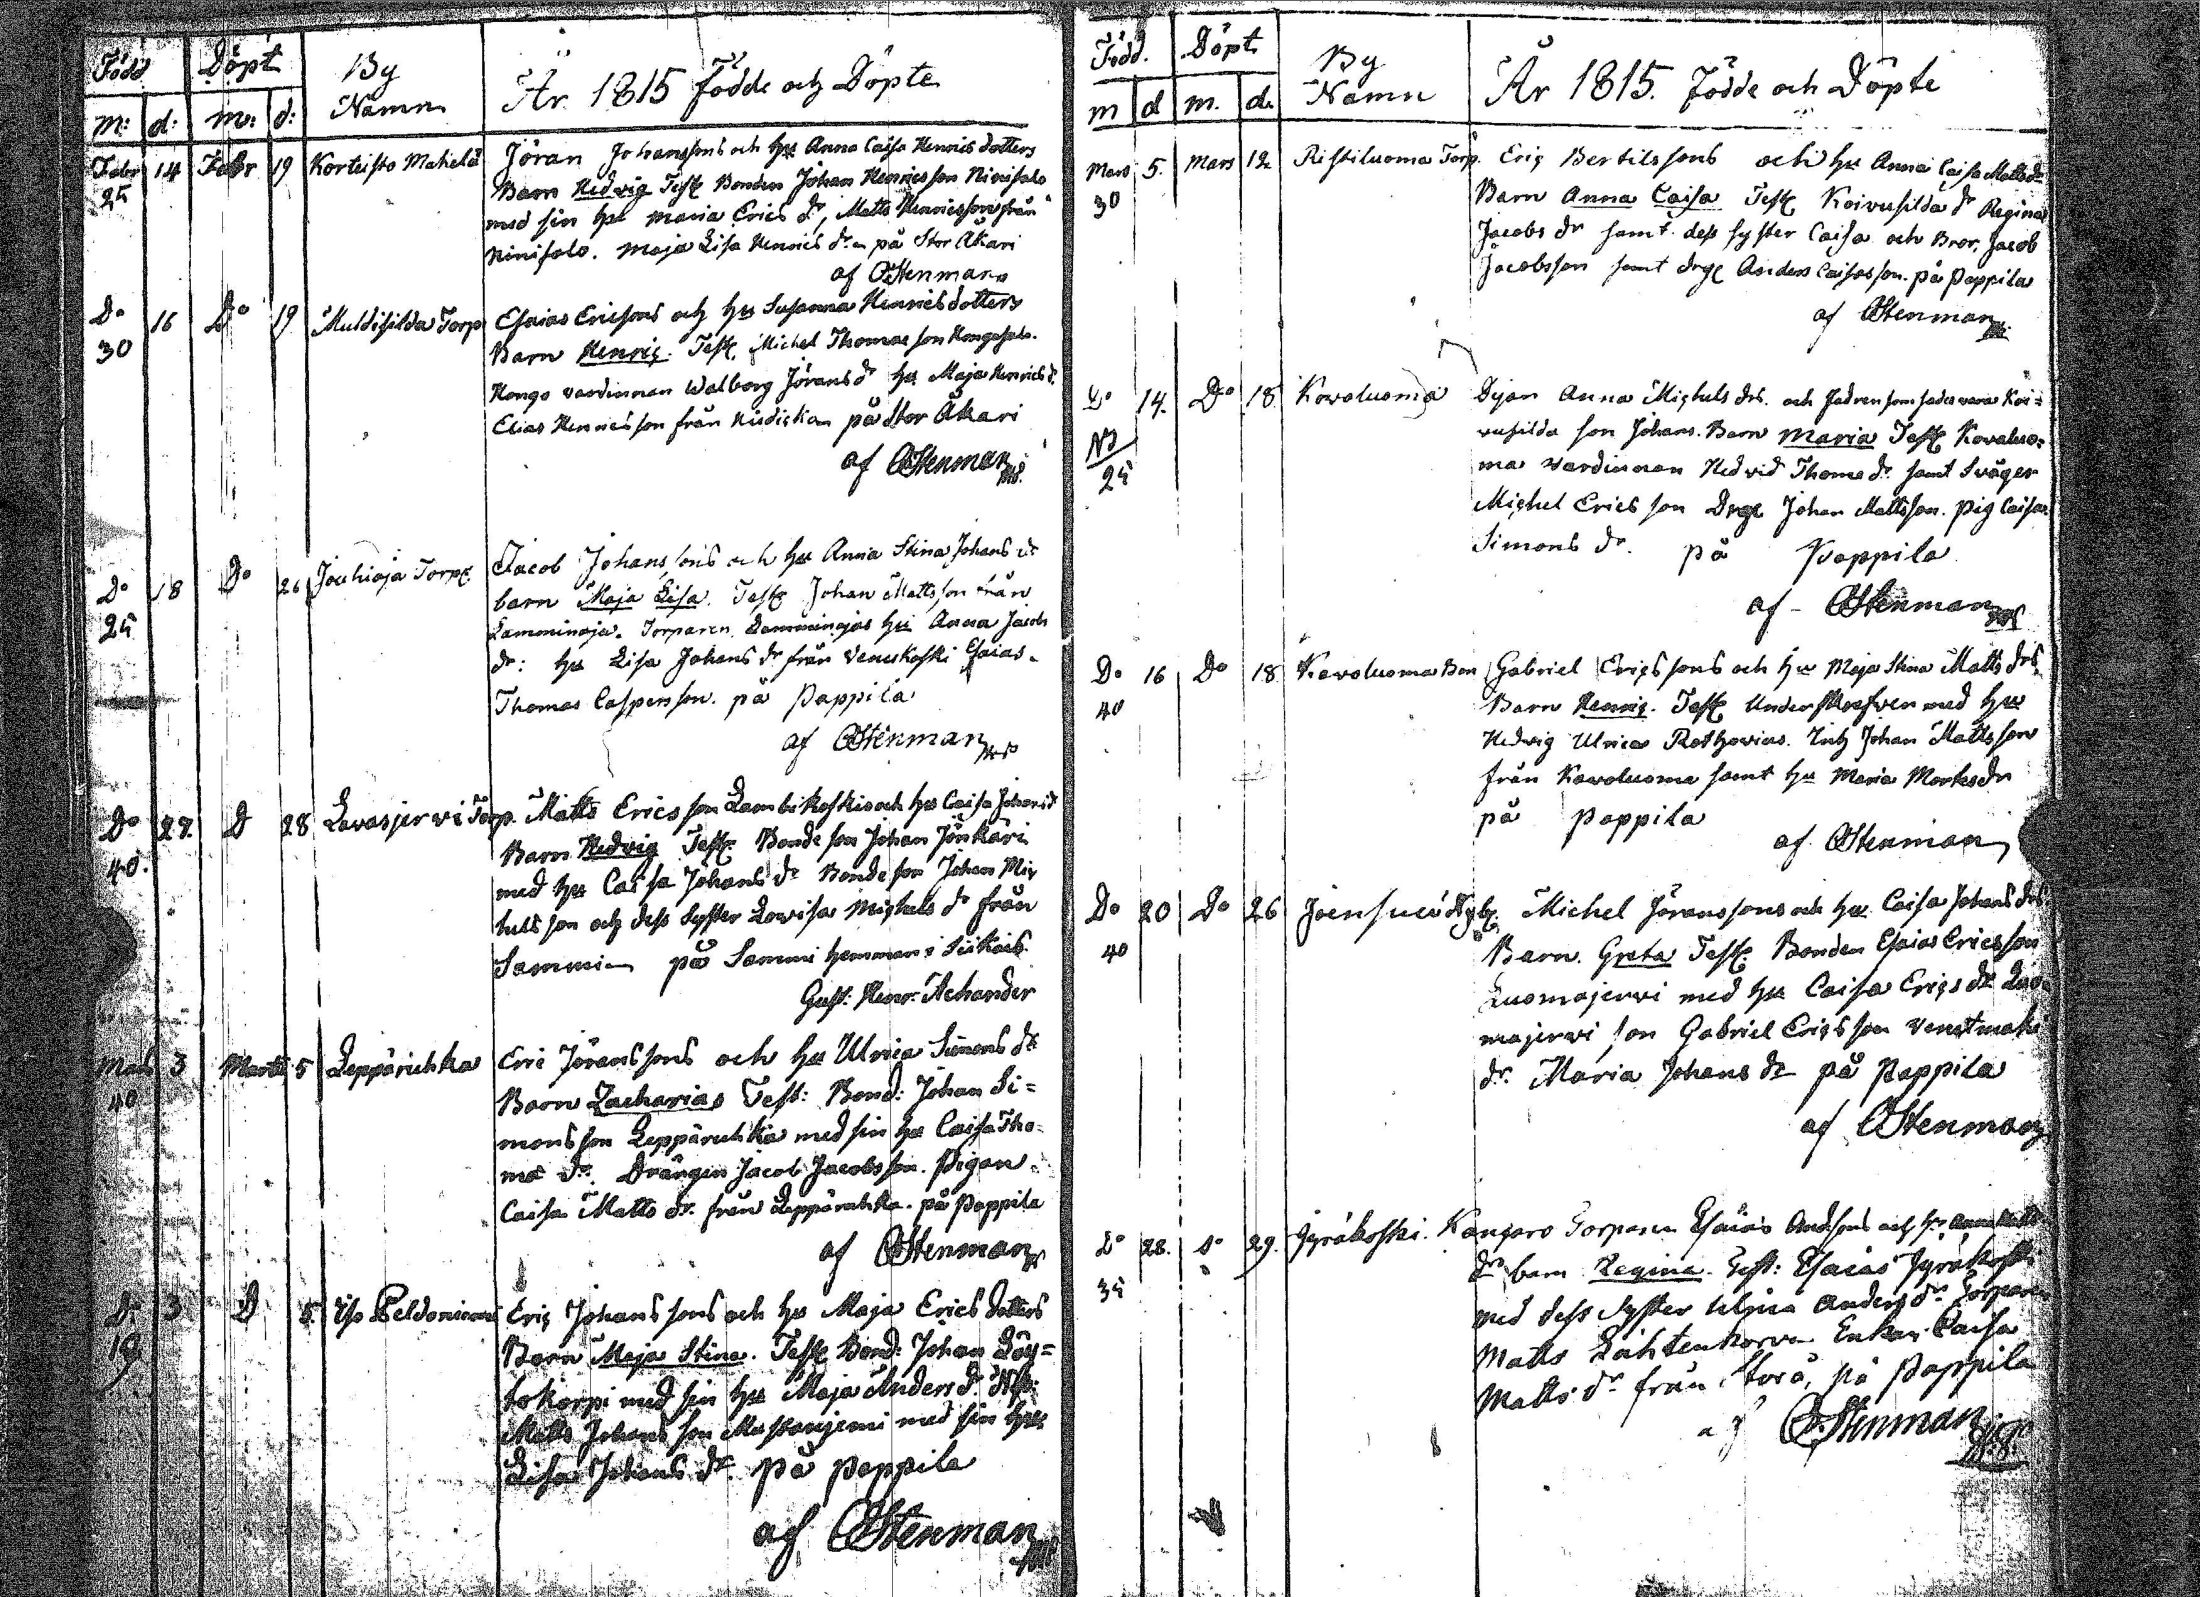 Född Döpt By Namn År 1815 födde och Döpte
m: d: m: d:
Febr 14 Febr 19 Korteisto Mahelä Jöran Johanssons och hu Anna Caisa Henrics dotters
25 Barn Hedwig Test Bonden Johan Henricsson Ninisalo
med sin hu Maria Erics dr, Matts Henricsson från
Ninisalo. Maja Lisa Henrics dr på Stor Åkari
af CStenman
Do 16 Do 19 Multisilda Torp Esaias Ericssons och hu Susanna Henrics dotters
30 Barn Henric. Test. Michel Thomae son Kongasalo.
Kongo vardinnan Walborg Jörans dr hu Maja Henrics d.
Elias Henricsson från på Stor Åkari
af CStenman
Do 18 Do 26 Jouhioja Torp. Jacob Johanssons och hu Anna Stina Johans dr
25 barn Maja Lisa. Test Johan Mattsson från
Lamminoja. Torparen Lamminojas hu Anna Jacobs
dr: hu Lisa Johans dr från Veneskoski Esaias
Thomas Caspersson. på Pappila
af CStenman
Do 27. D 28 Lavasjervi Torp. Matts Ericsson Lambikoski och hu Caisa Johans d
40. Barn Hedvig Test. Bonde son Johan Jönkäri
med hu Caisa Johans dr Bonde son Johan Mic
hels son och dess Syster Lowisa Michels dr från
Sammi på Sammi hemman i Siikais
Gust: Henr: Achander
Mars 3 Martii 5 Leppäruhka Eric Jöranssons och hu Ulrica Simons dr
40 Barn Zacharias Test: Bond: Johan Si=
mons son Leppäruhka med sin hu Caisa Tho
mæ dr. Drängen Jacob Jacobsson. Pigan
Caisa Matts dr. från Leppäruhka. på Pappila
af CStenman
Do 3 D 5. Iso Peldoniemi Eric Johans sons och hu Maja Erics dotters
19 Barn Maja Stina. Test Bond: Johan Löy=
tokorpi med sin hu Maja Anders dr
Matts Johans son Mustaniemi med sin hu
Lisa Johans dr. på pappila
af CStenman
Född. Döpt By Namn År 1815. födde och Döpte
m d m. d.
Mars 5. Mars 12 Ristiluoma Torp. Eric Bertilssons och hu Anna Caisa Matts dr
30 Barn Anna Caisa Test Koivusilda dr Regina
Jacobs dr samt dess syster Caisa och Bror, Jacob
Jacobsson samt drge Anders Caisasson. på Pappila
af CStenman
Do 14. Do 18 Kowoluoma Dejan Anna Michels drs. och fadren som sades vara Koi=
NB vusilda son Johans. Barn Maria Test Kowoluo=
25 ma wardinnan Hedvid Thomæ dr. samt Svåger
Michel Erics son Drge Johan Mattsson. Pig Caisa
Simons dr. på Pappila
af CStenman
Do 16 Do 18 Kowoluoma Bon Gabriel Ericssons och hu Maja Stina Matts drs
40 Barn Henric. Test Underskrefven med hu
Hedvig Ulrica Rothovius. Johan Mattsson
från Kowoluoma samt hu Maria Markus dr
på Pappila
af CStenman
Do 20 Do 26 Joensuu Michel Jöranssons och hu Caisa Johans drs
40 Barn. Greta Test. Bonden Esaias Ericsson
Luomajervi med hu Caisa Erics dr Luo
majervi son Gabriel Ericsson
dr. Maria Johans dr på Pappila
af CStenman
Do 28. do 29. Jyräkoski. Kangaro Torparen Esaias Andssons och hu Anna Matts
35 dr barn Regina. Test: Esaias Jyräkoski
med dess Syster Ulrica Anders dr Torparen
Matts Lähtenkorva Enkan Caisa
Matts dr från Storå, på Pappila
af CStenman